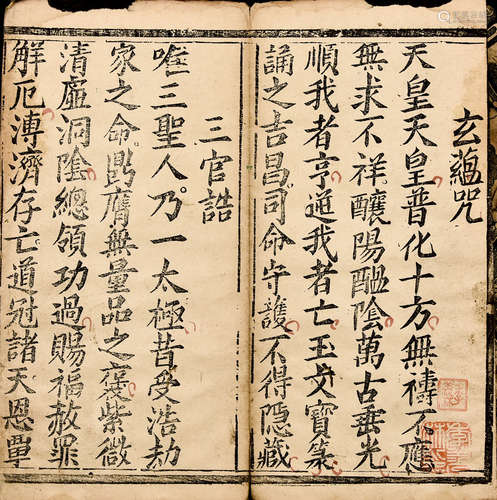 玄蘊咒
天皇天皇普化十方無禱不應
無求不祥釀陽醞陰萬古垂光
順我者亨逆我者亡玉文寶篆
誦之吉昌司命守護不得隱藏
三官誥
唯三聖人乃一太極昔受浩劫
家之命膺無量品之褒紫微
清虛洞陰總領功過賜福赦罪
解厄溥濟存亡道冠諸天恩覃